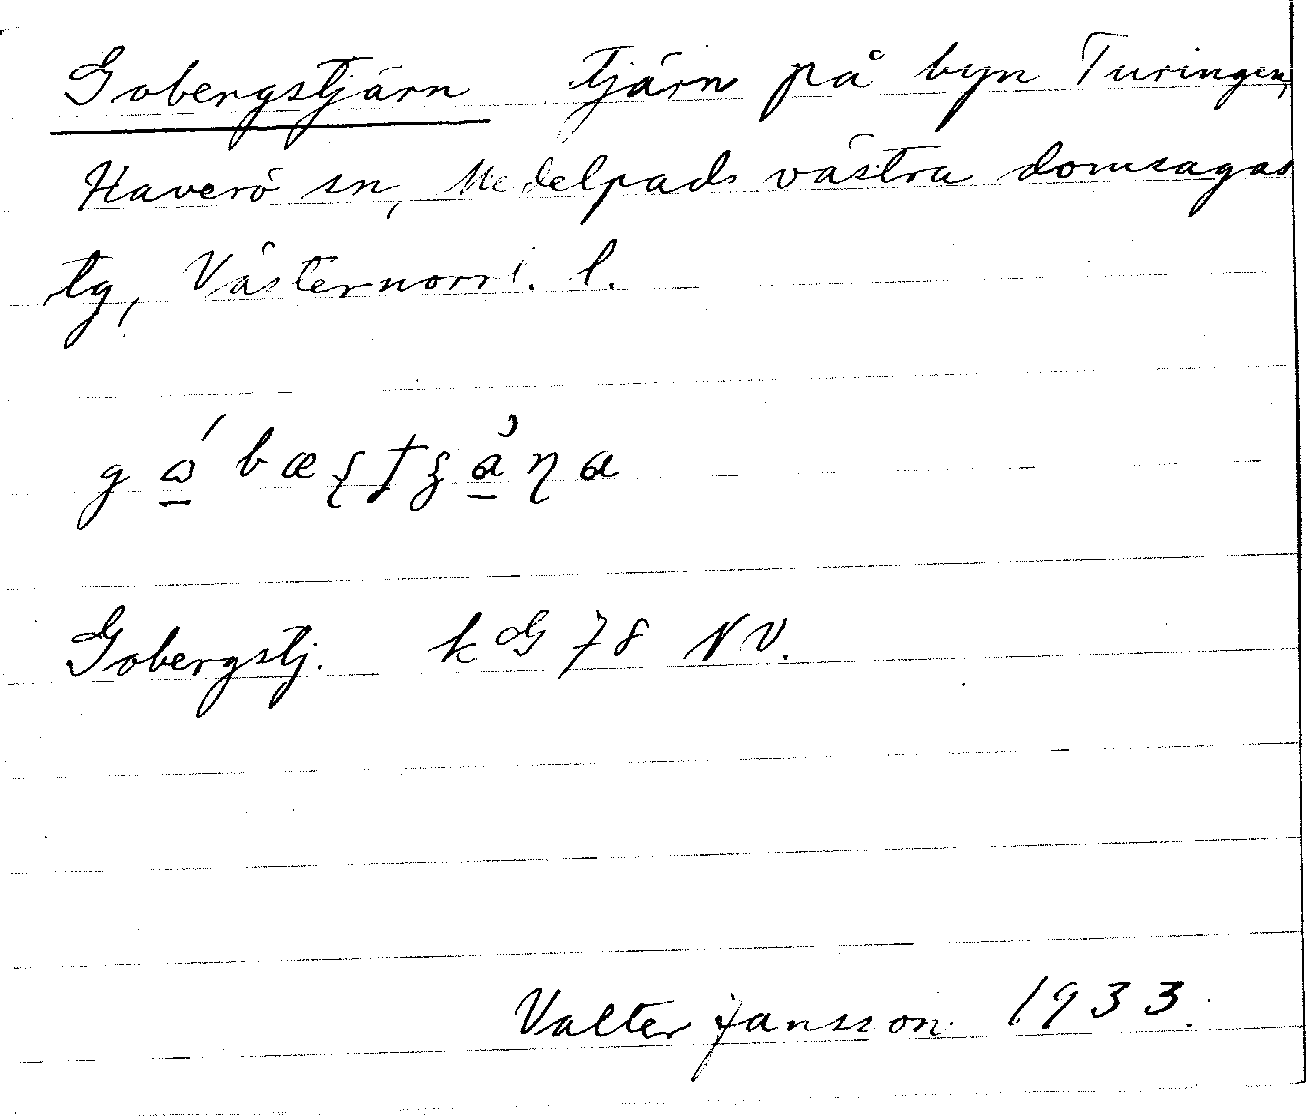 Gobergstjärn tjärn på byn Turingen,
Haverö sn, Medelpads västra domsagas
tg, Västernorrl. l.
Gobergstj. k G 78 NV.
Valter Jansson 1933.